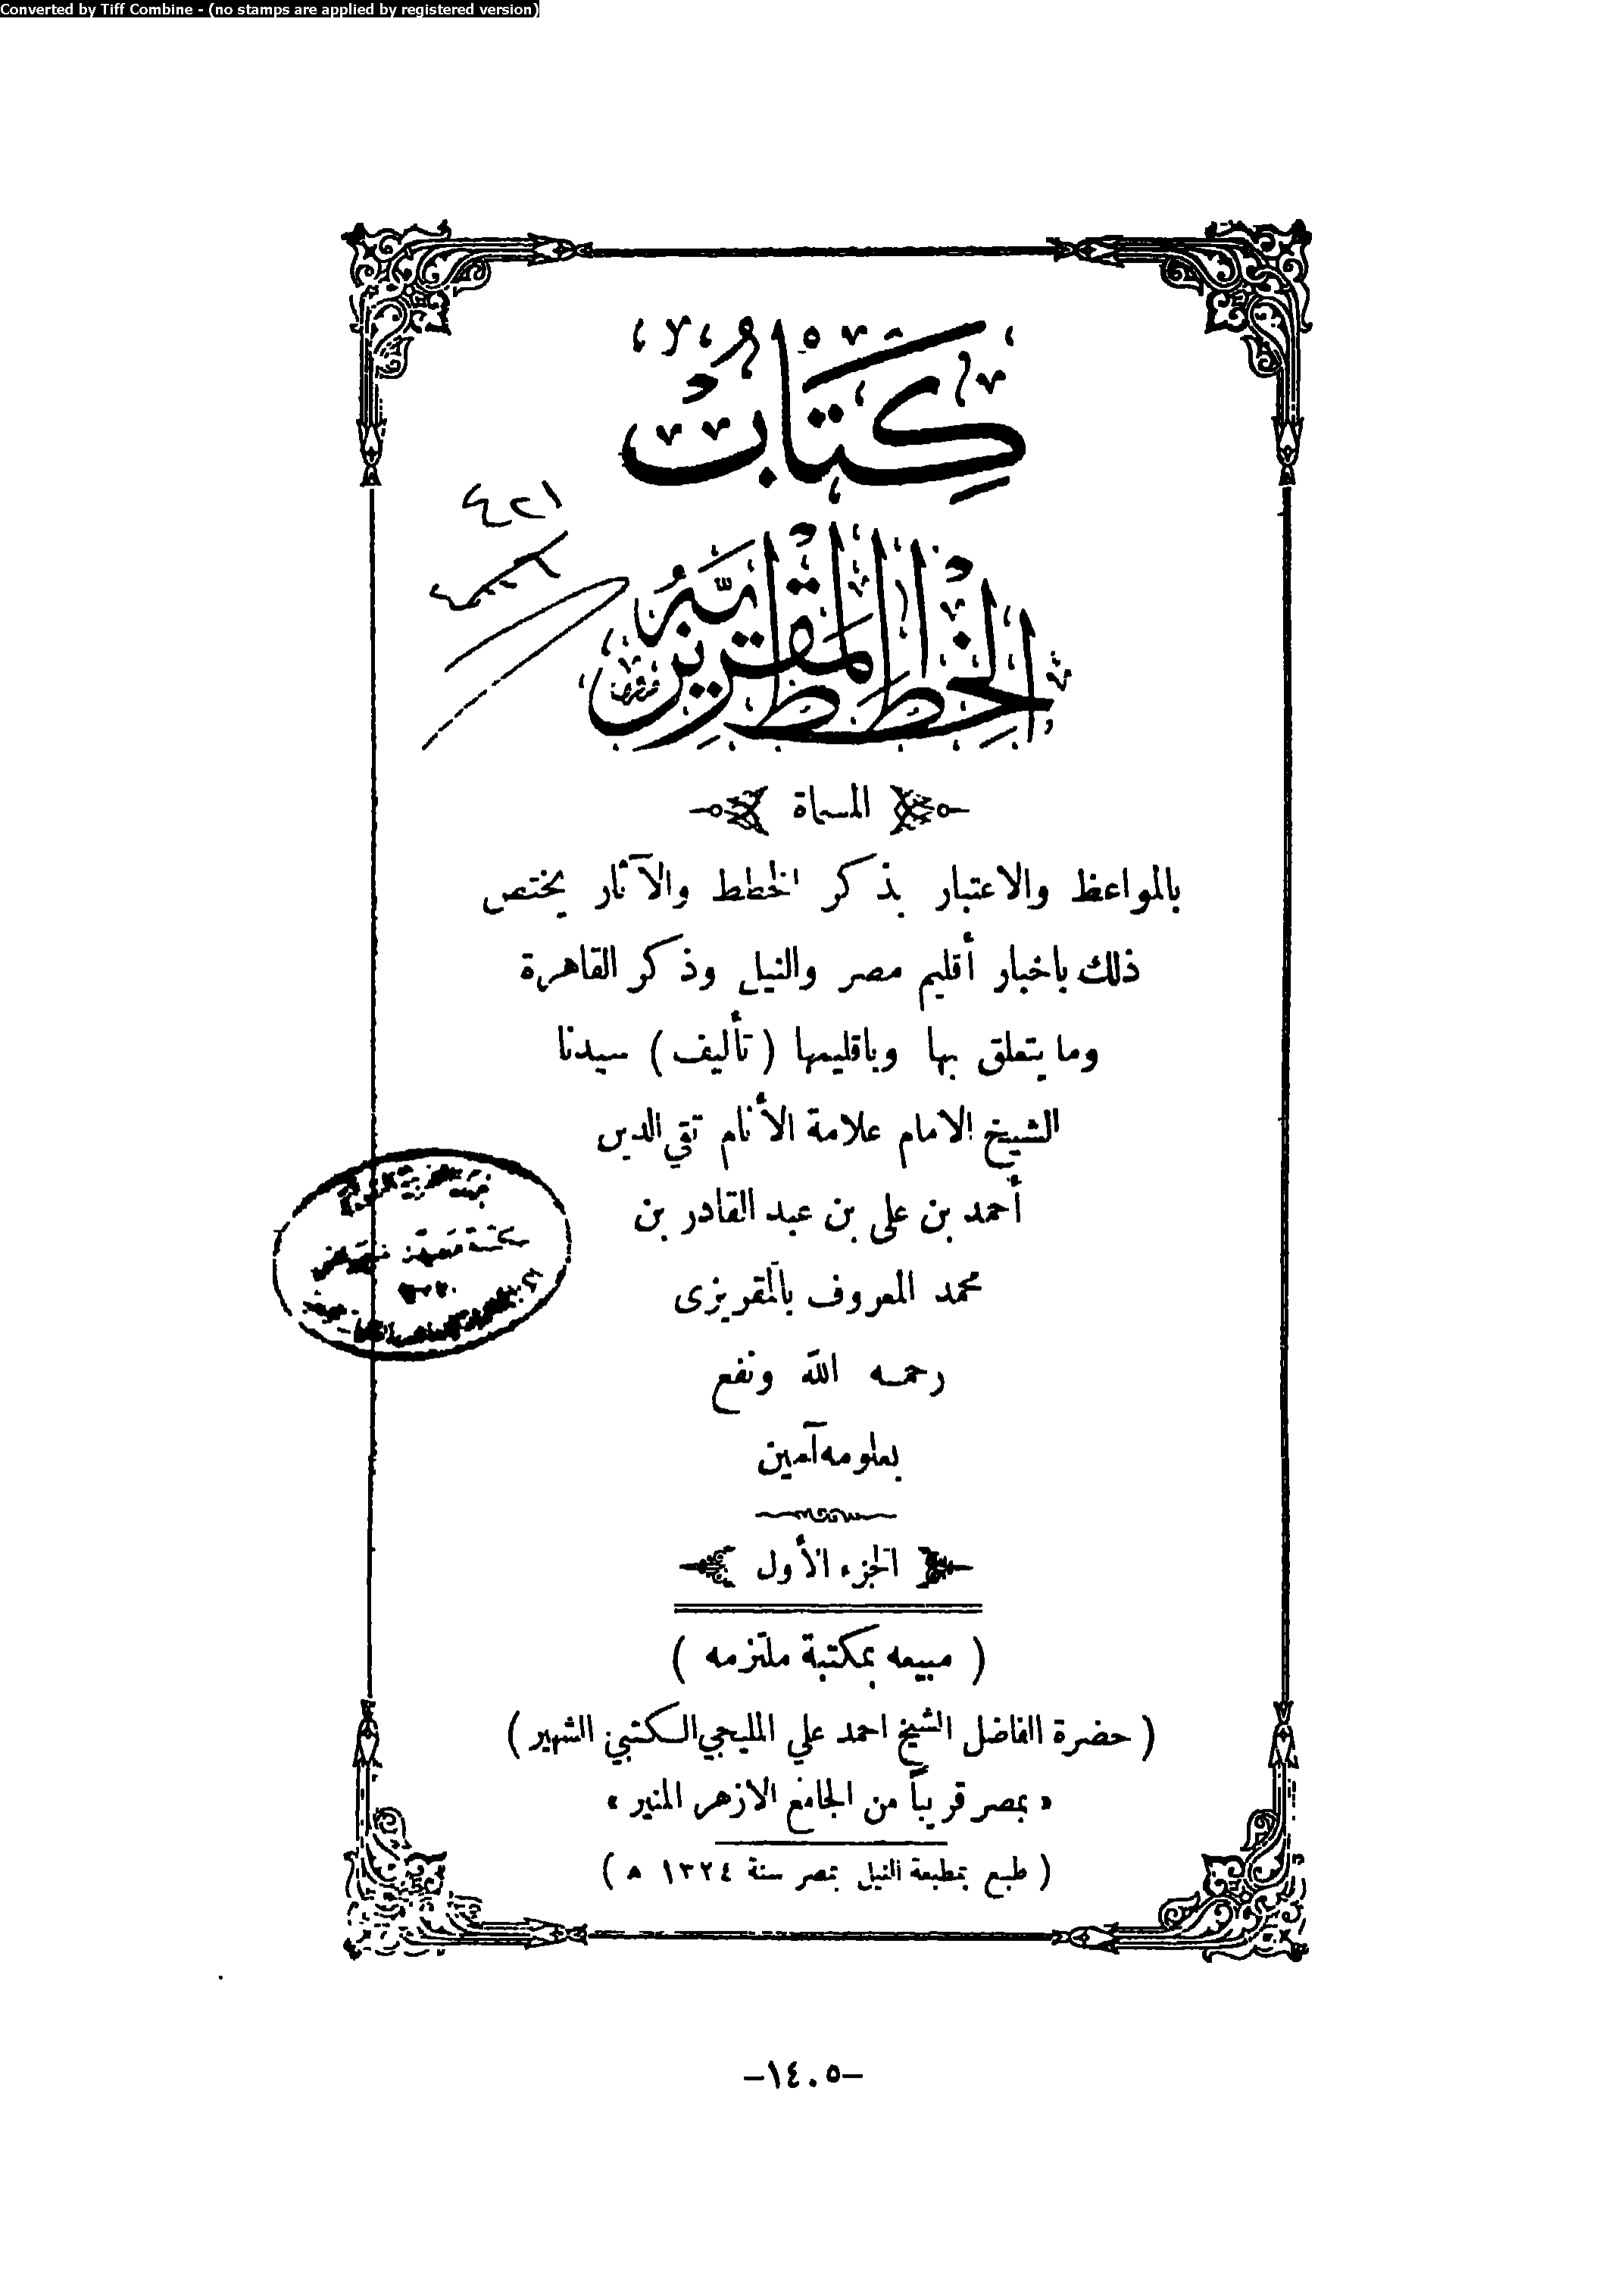 Converted by Tiff Combine - (no stamps are applied by registered version)
كِتَابُ
الخِطَطِ المقريزيّه
المسماة
بالمواعظ والاعتبار بذكر الخطط والآثار يختص
ذلك باخبار أقليم مصر والنيل وذكر القاهرة
وما يتعلق بها وباقليمها ( تأليف ) سيدنا
الشيخ الامام علامة الأنام تقي الدين
أحمد بن علي بن عبد القادر بن
محمد المعروف بالمقريزى
رحمه الله ونفع
بعلومه آمين
الجزء الأول
( مبيعه بمكتبة ملتزمه )
( حضرة الفاضل الشيخ احمد علي المليجي الكتبي الشهير )
« بمصر قريباً من الجامع الازهر المنير »
( طبع بمطبعة النيل بمصر سنة ١٣٢٤ ه )
-١٤٠٥-